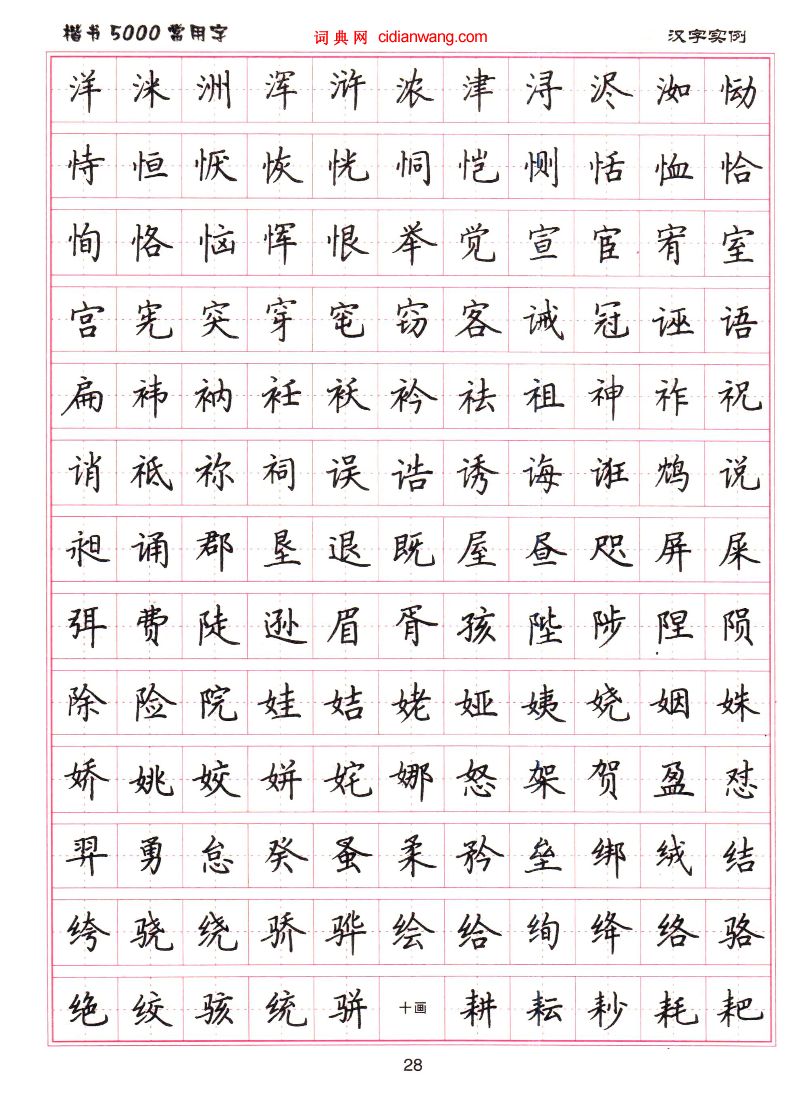 楷书5000常用字 词典网 cidianwang.com 汉字实例
洋 洣 洲 浑 浒 浓 津 浔 浕 洳 恸
恃 恒 恹 恢 恍 恫 恺 恻 恬 恤 恰
恂 恪 恼 恽 恨 举 觉 宣 宦 宥 室
宫 宪 突 穿 窀 窃 客 诫 冠 诬 语
扁 袆 衲 衽 袄 衿 祛 祖 神 祚 祝
诮 祗 祢 祠 误 诰 诱 诲 诳 鸩 说
昶 诵 郡 垦 退 既 屋 昼 咫 屏 屎
弭 费 陡 逊 眉 胥 孩 陛 陟 陧 陨
除 险 院 娃 姞 姥 娅 姨 娆 姻 姝
娇 姚 姣 姘 姹 娜 怒 架 贺 盈 怼
羿 勇 怠 癸 蚤 柔 矜 垒 绑 绒 结
绔 骁 绕 骄 骅 绘 给 绚 绛 络 骆
绝 绞 骇 统 骈 十画 耕 耘 耖 耗 耙
28